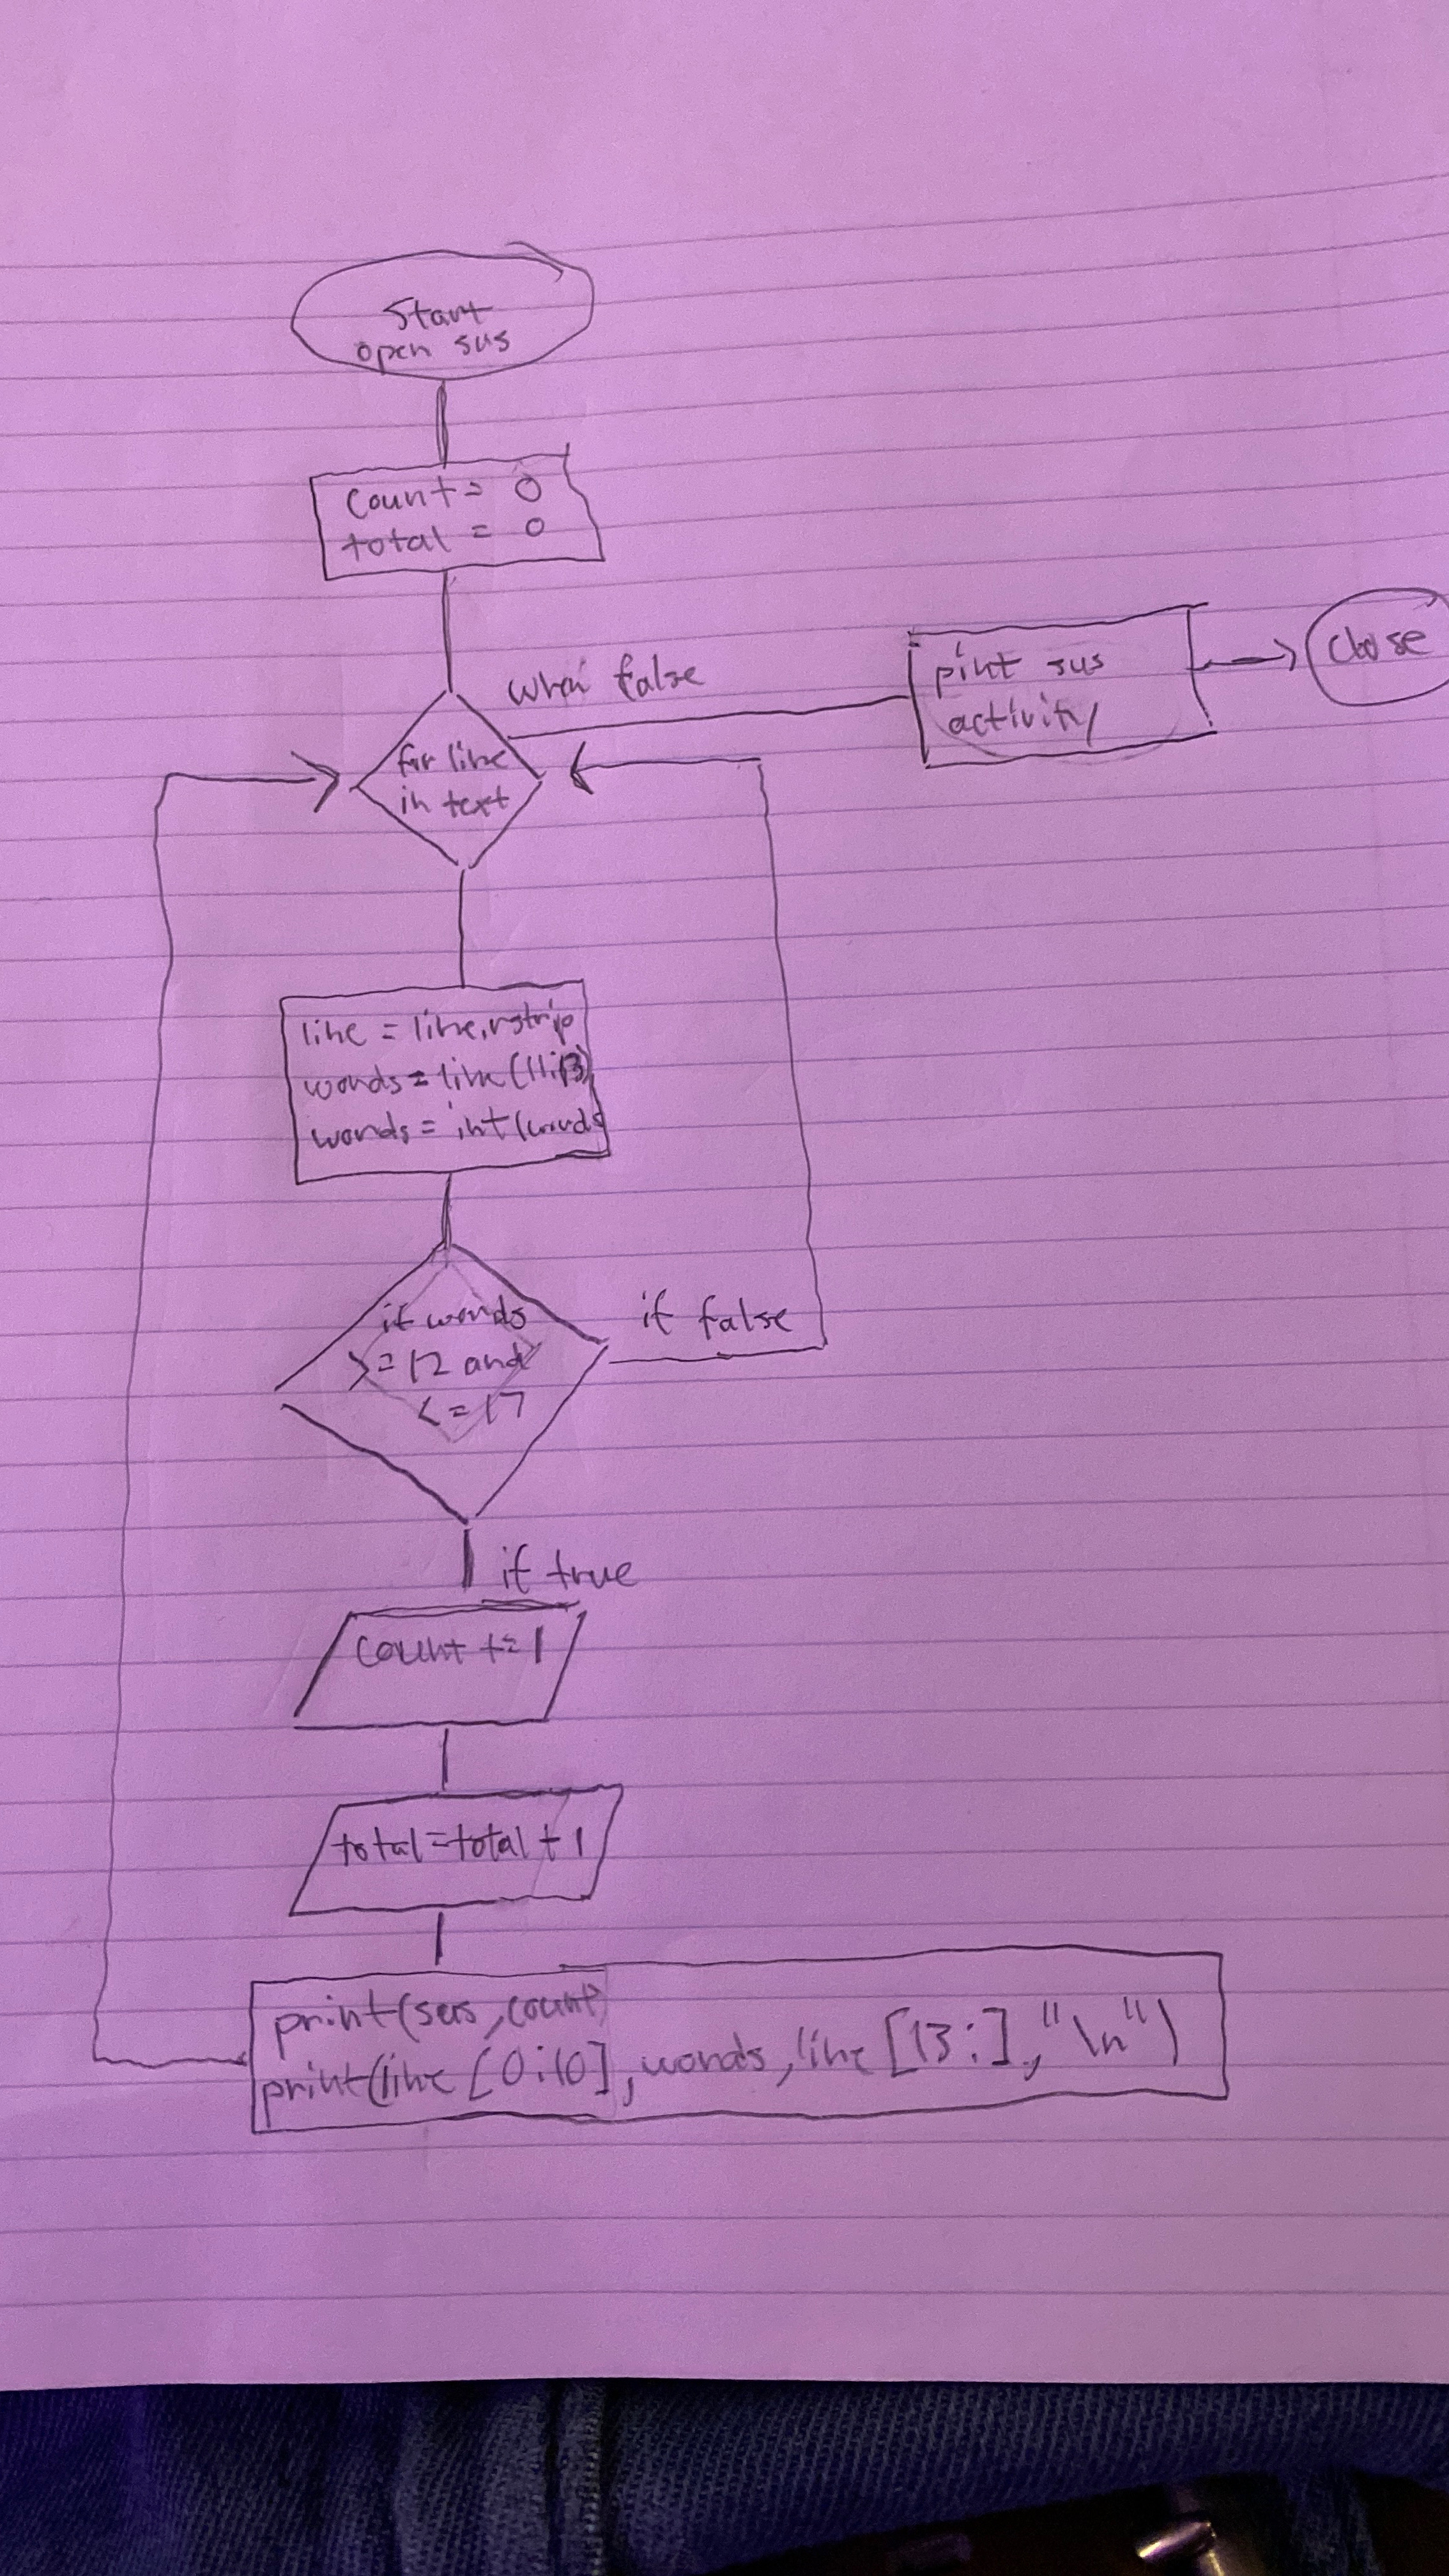 Start
open sus
Count= 0
total = 0
when false
pint sus
activity
close
for line
in text
line = line.rstrip
words = line(11:13)
words = int(words
if words
>=12 and
<=17
if false
if true
count +=1
total=total+1
print(sus,count)
print(line[0:10],words,line[13:],"\n")